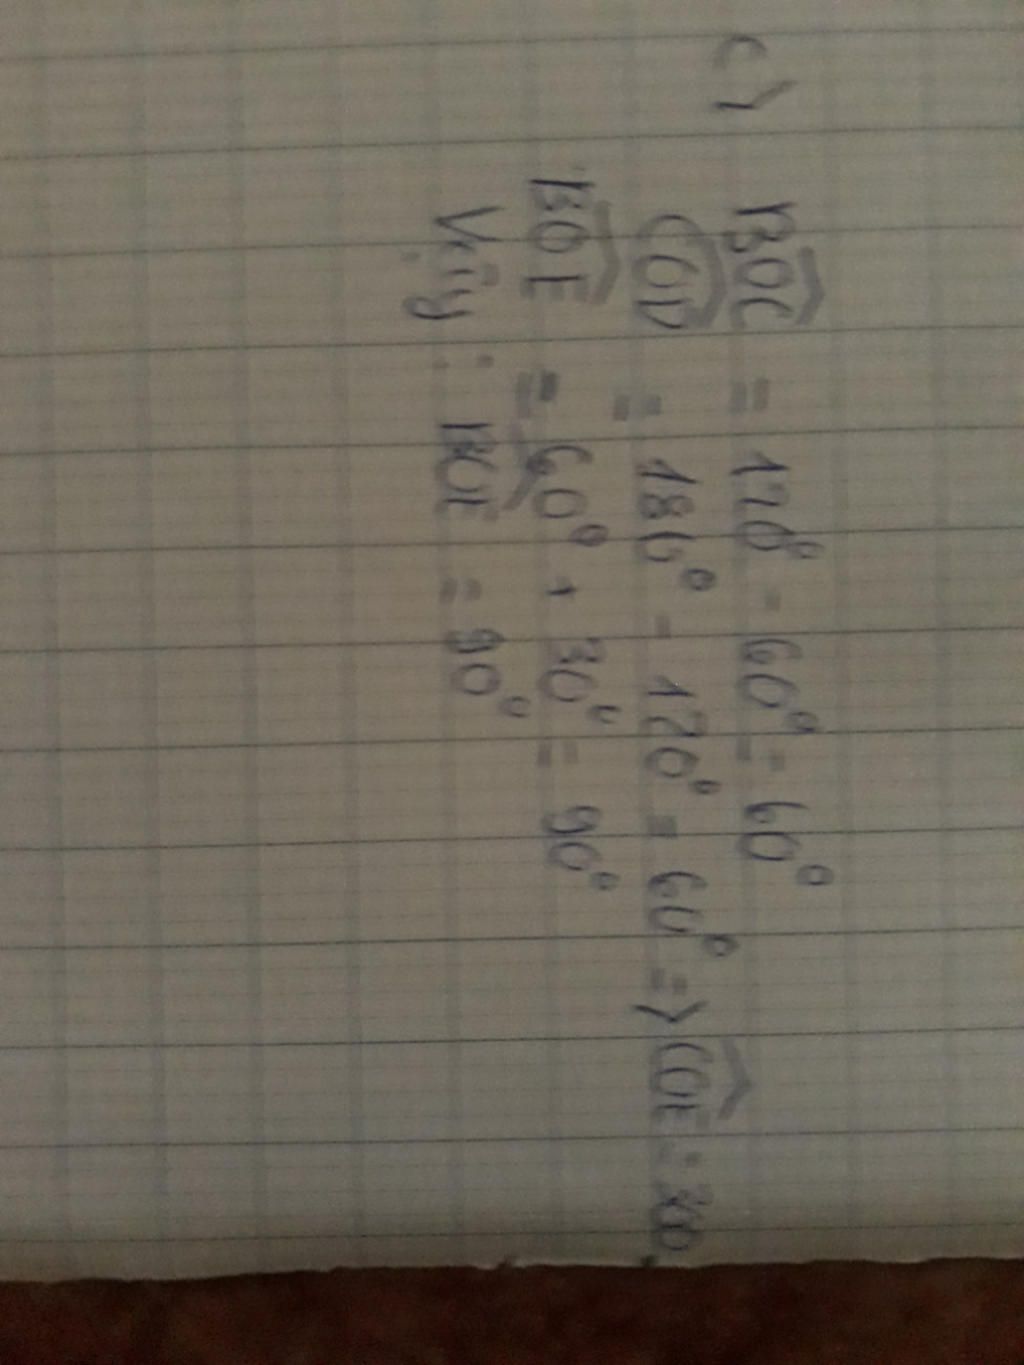 c)
BOC = 120° - 60° = 60°
COD = 180° - 120° = 60° => COE = 30°
BOE = 60° + 30° = 90°
Vậy : BOE = 90°